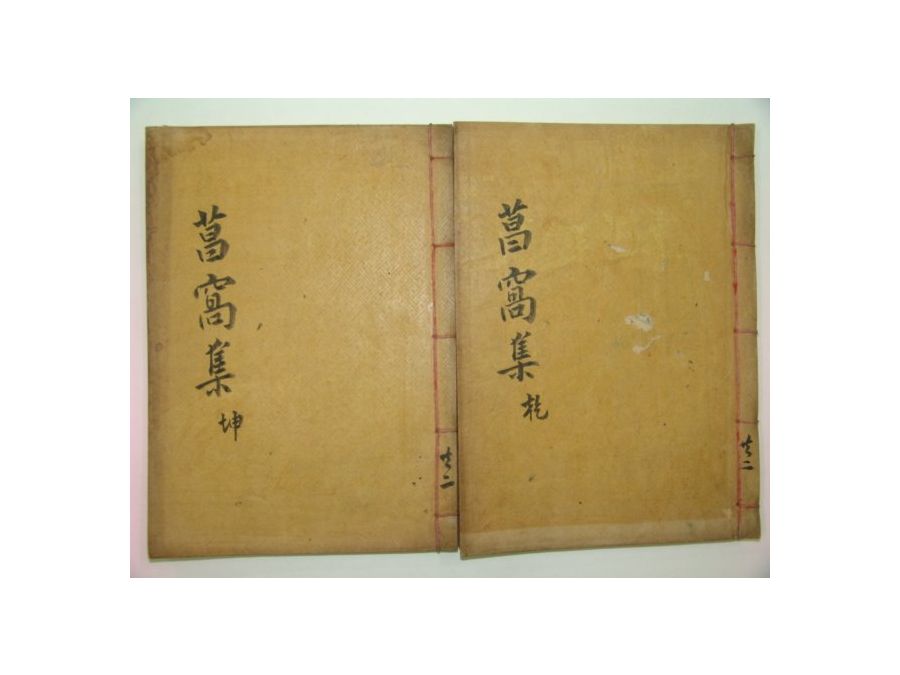 菖窩集 乾
共二
菖窩集 坤
共二